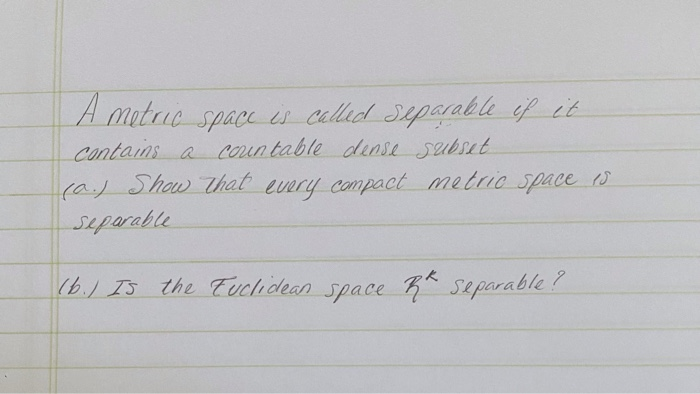 A metric space is called separable if it
contains a countable dense subset
(a.) Show that every compact metric space is
separable
(b.) Is the Euclidean space R^k separable?